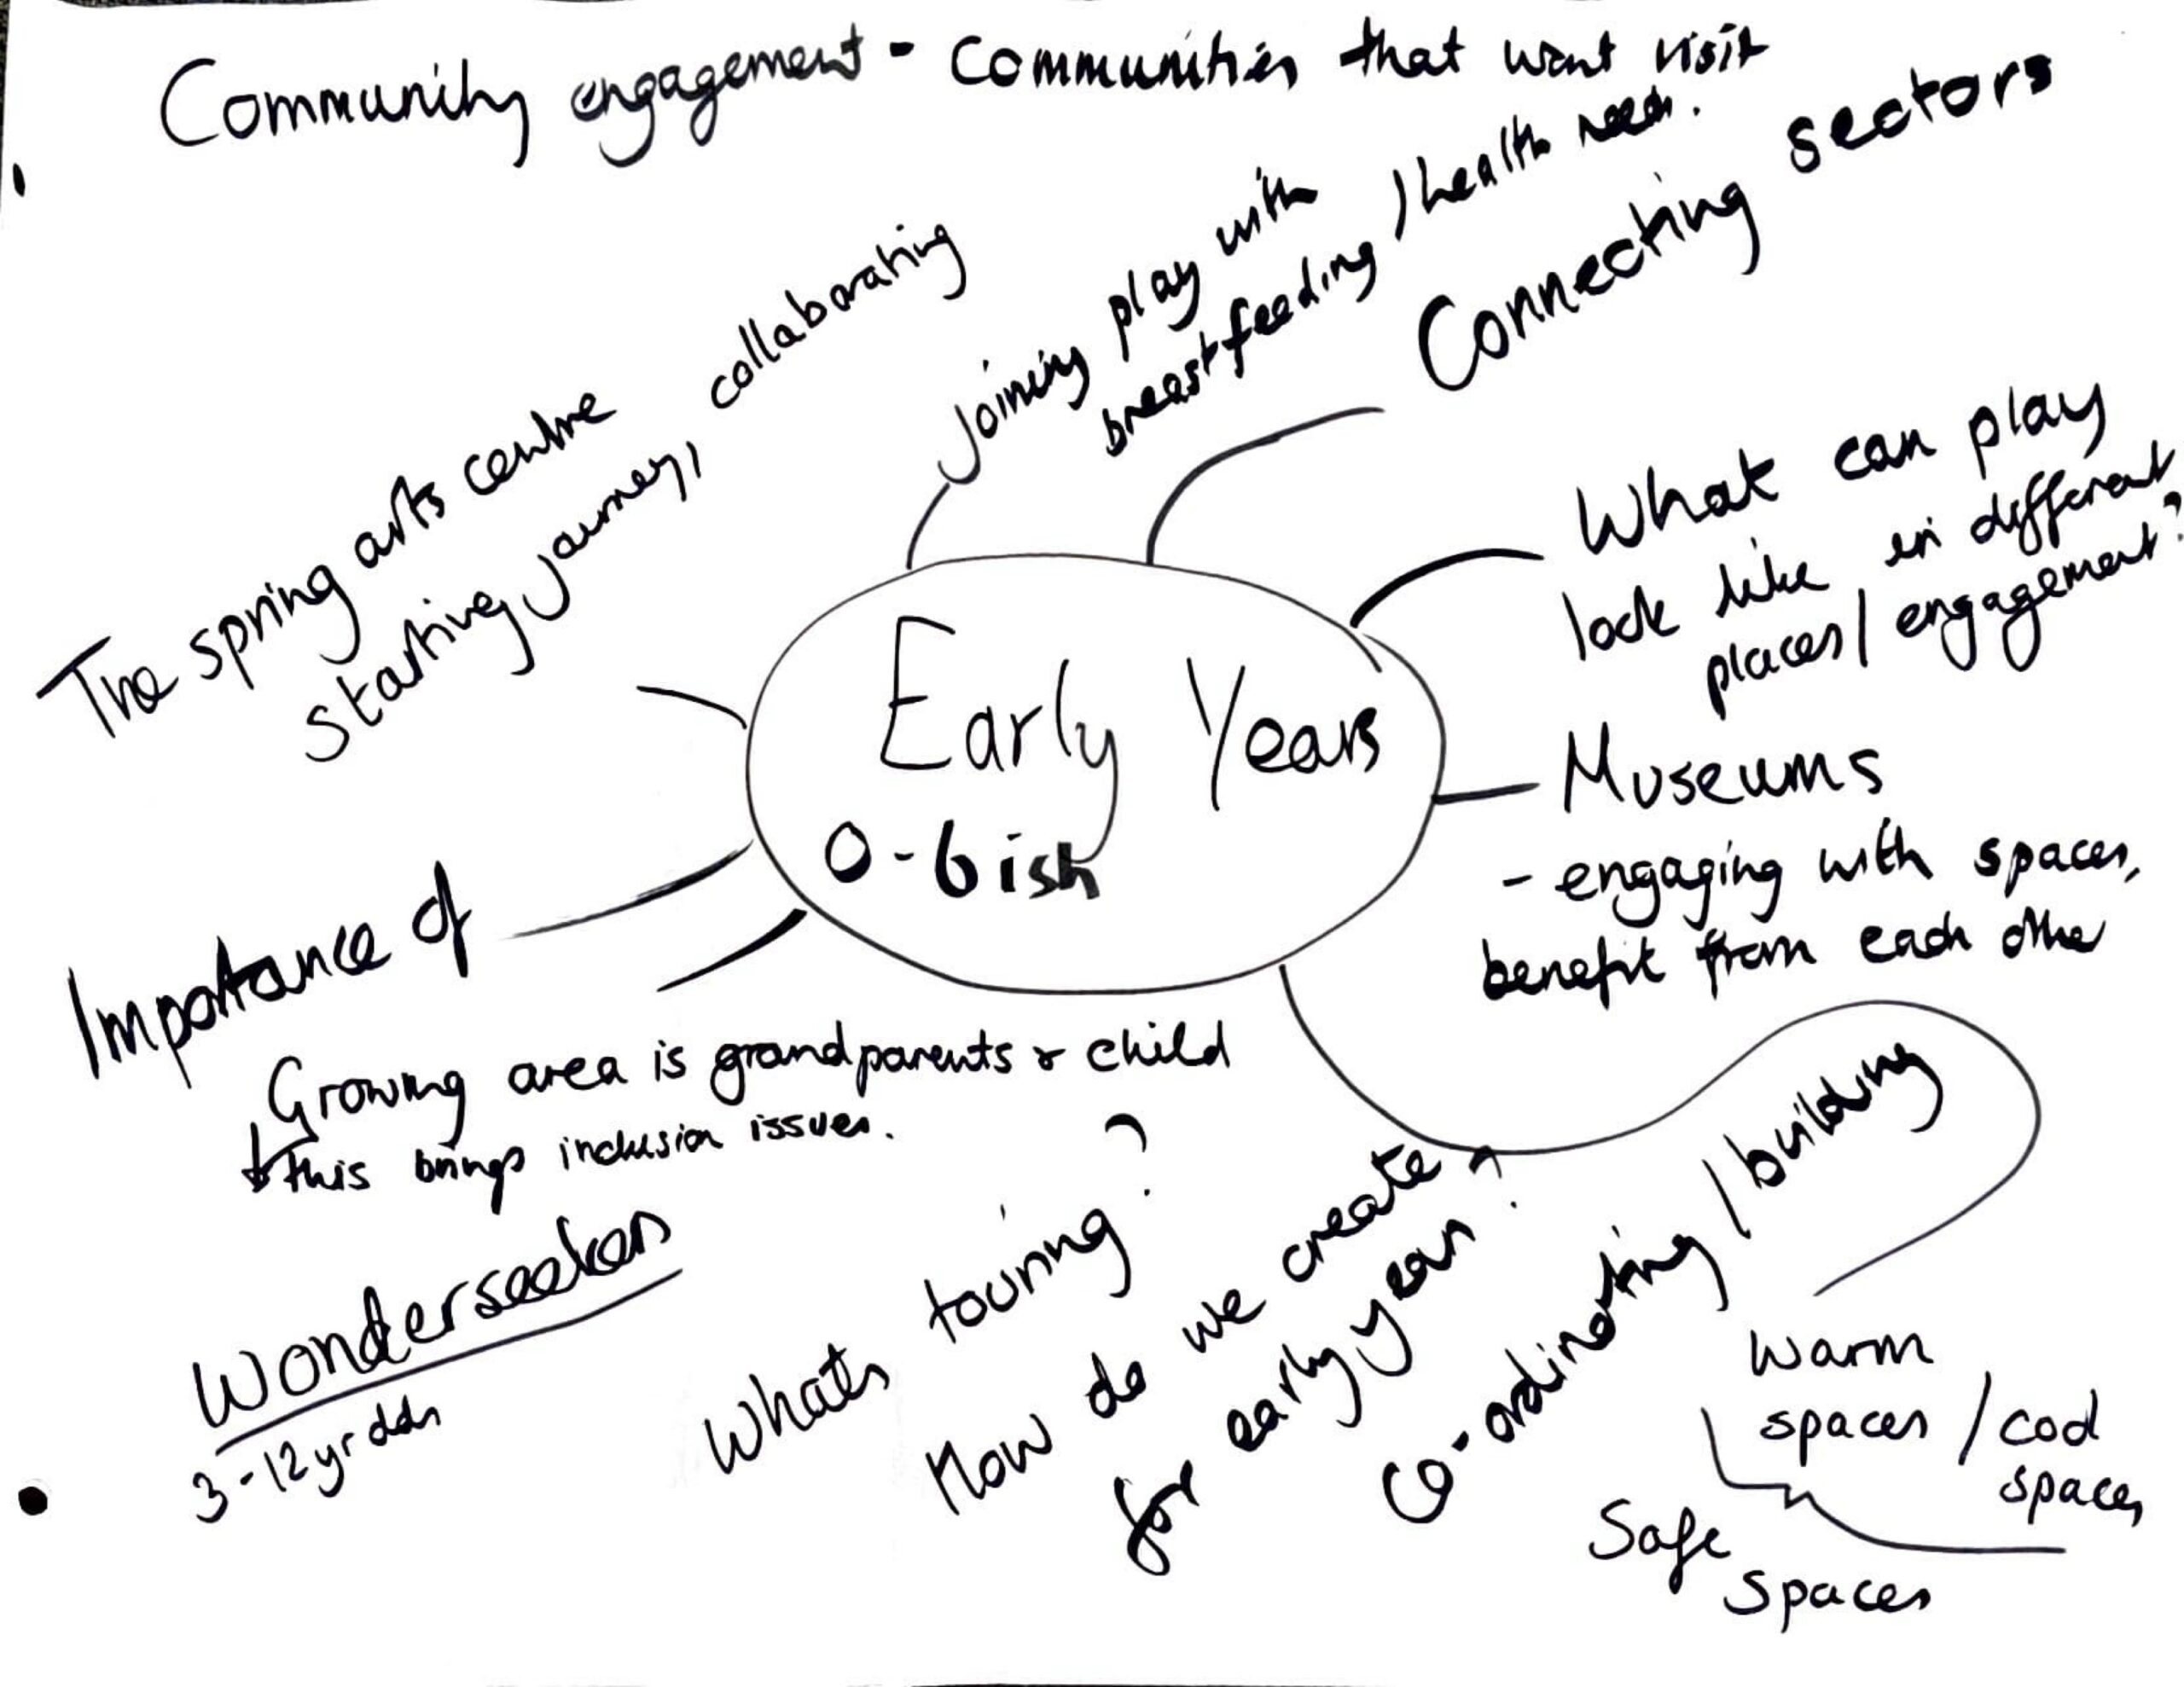 Community engagement - Communities that want visit
Joining play with
breastfeeding / health needs.
Connecting sectors
The spring arts centre
Starting journey, collaborating
What can play
look like in different
places / engagement?
Early Years
0-6ish
Museums
- engaging with spaces,
benefit from each other
Importance of
Growing area is grandparents & child
this brings inclusion issues.
Wonderseekers
3-12 yr olds
Whats touring?
How do we create
for early years?
Co-ordinating / building
Warm
spaces / cool
spaces
Safe
spaces